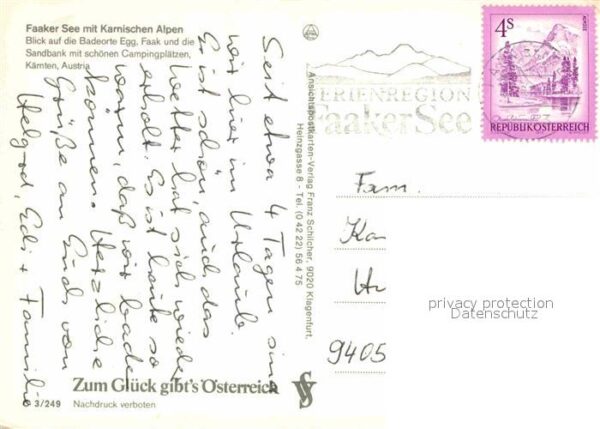 Faaker See mit Karnischen Alpen
Blick auf die Badeorte Egg, Faak und die
Sandbank mit schönen Campingplätzen,
Kärnten, Austria
Seit etwa 4 Tagen sind
wir hier im Urlaub.
Es ist schön, auch das
Wetter hat sich wieder
erholt. Es ist heute so
warm, daß wir baden
können. Herzliche
Grüße an Euch von
Helgard, Edi + Familie
Zum Glück gibt's Österreich
© 3/249 Nachdruck verboten
Ansichtspostkarten-Verlag Franz Schilcher, 9020 Klagenfurt,
Heinzgasse 8 - Tel. (0 42 22) 56 4 75
FERIENREGION
Faaker See
4S
REPUBLIK ÖSTERREICH
Fam.
Ka
9405
privacy protection
Datenschutz